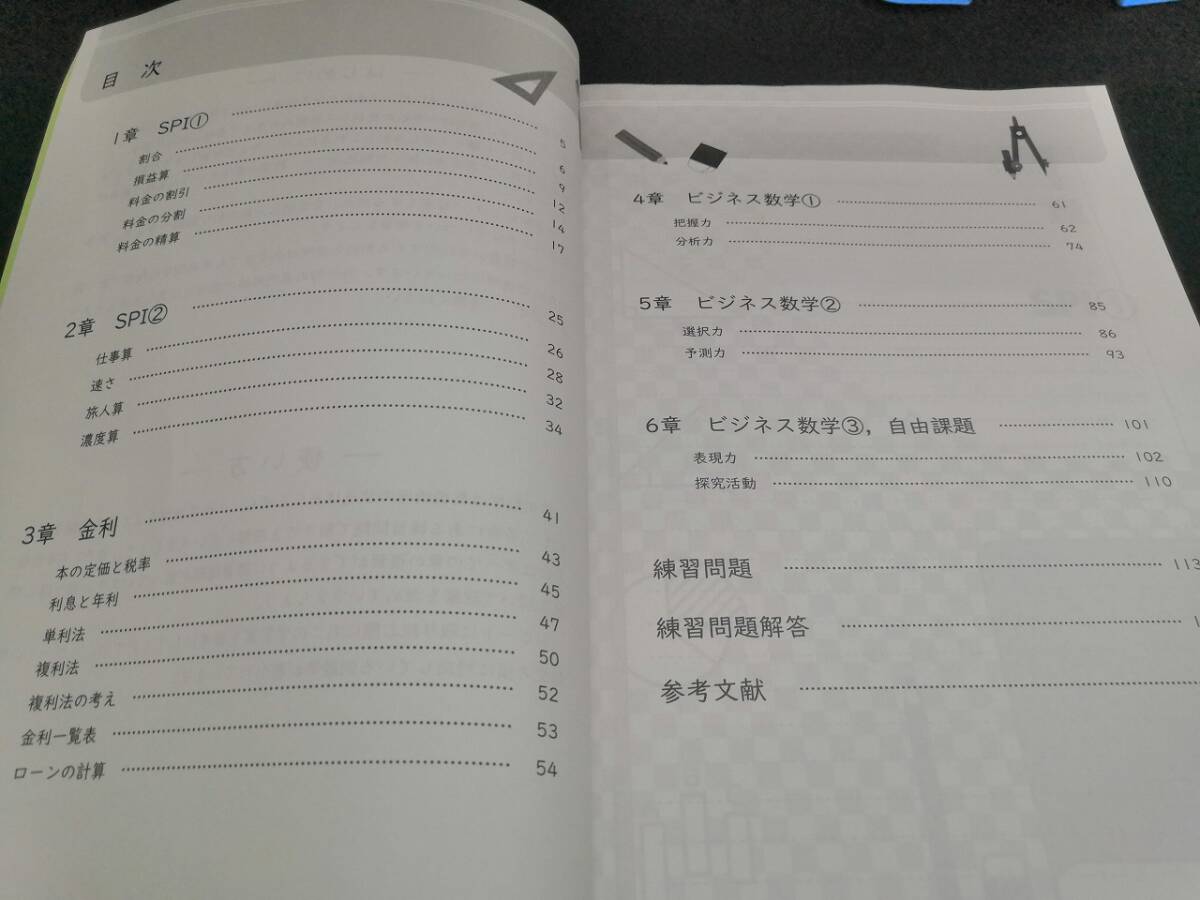 目 次
1章 SPI① 5
割合 6
損益算 9
料金の割引 12
料金の分割 14
料金の精算 17
2章 SPI② 25
仕事算 26
速さ 28
旅人算 32
濃度算 34
3章 金利 41
本の定価と税率 43
利息と年利 45
単利法 47
複利法 50
複利法の考え 52
金利一覧表 53
ローンの計算 54
4章 ビジネス数学① 61
把握力 62
分析力 74
5章 ビジネス数学② 85
選択力 86
予測力 93
6章 ビジネス数学③，自由課題 101
表現力 102
探究活動 110
練習問題 113
練習問題解答
参考文献